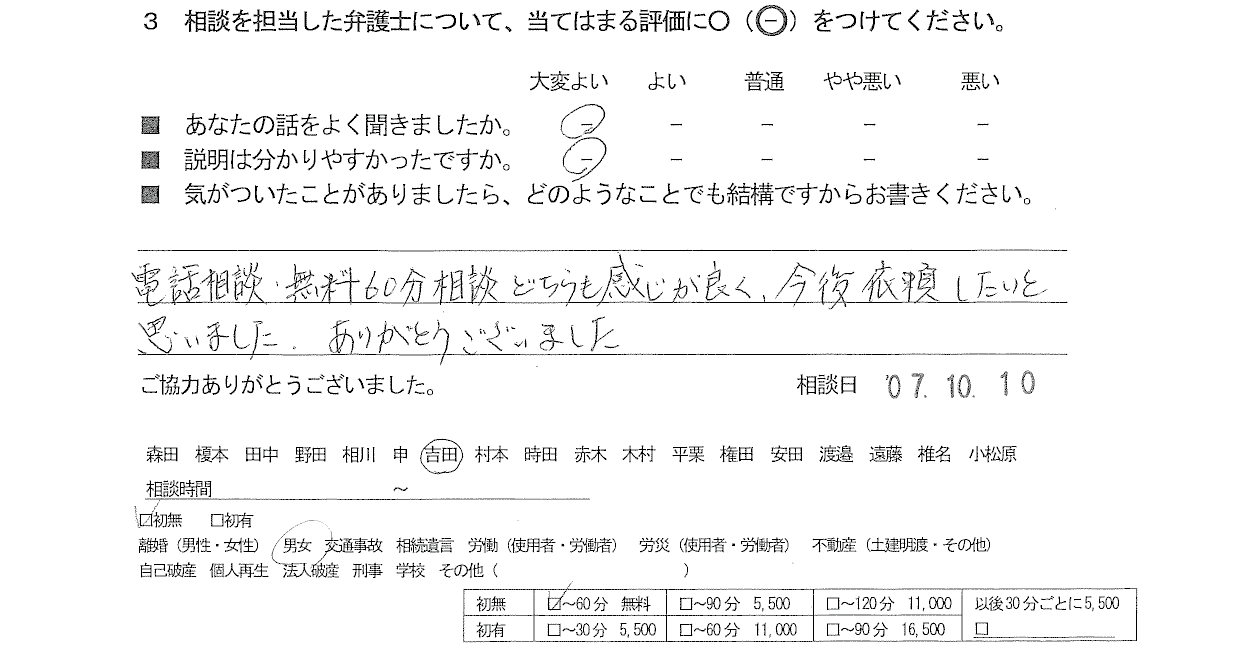 3 相談を担当した弁護士について、当てはまる評価に○（⊖）をつけてください。
大変よい よい 普通 やや悪い 悪い
■ あなたの話をよく聞きましたか。 － － － － －
■ 説明は分かりやすかったですか。 － － － － －
■ 気がついたことがありましたら、どのようなことでも結構ですからお書きください。
電話相談・無料60分相談どちらも感じが良く、今後依頼したいと
思いました。ありがとうございました
ご協力ありがとうございました。 相談日 '07.10.10
森田 榎本 田中 野田 相川 申 吉田 村本 時田 赤木 木村 平栗 権田 安田 渡邉 遠藤 椎名 小松原
相談時間 ～
☑初無 □初有
離婚（男性・女性） 男女 交通事故 相続遺言 労働（使用者・労働者） 労災（使用者・労働者） 不動産（土建明渡・その他）
自己破産 個人再生 法人破産 刑事 学校 その他（ ）
初無 ☑～60分 無料 □～90分 5,500 □～120分 11,000 以後30分ごとに5,500
初有 □～30分 5,500 □～60分 11,000 □～90分 16,500 □